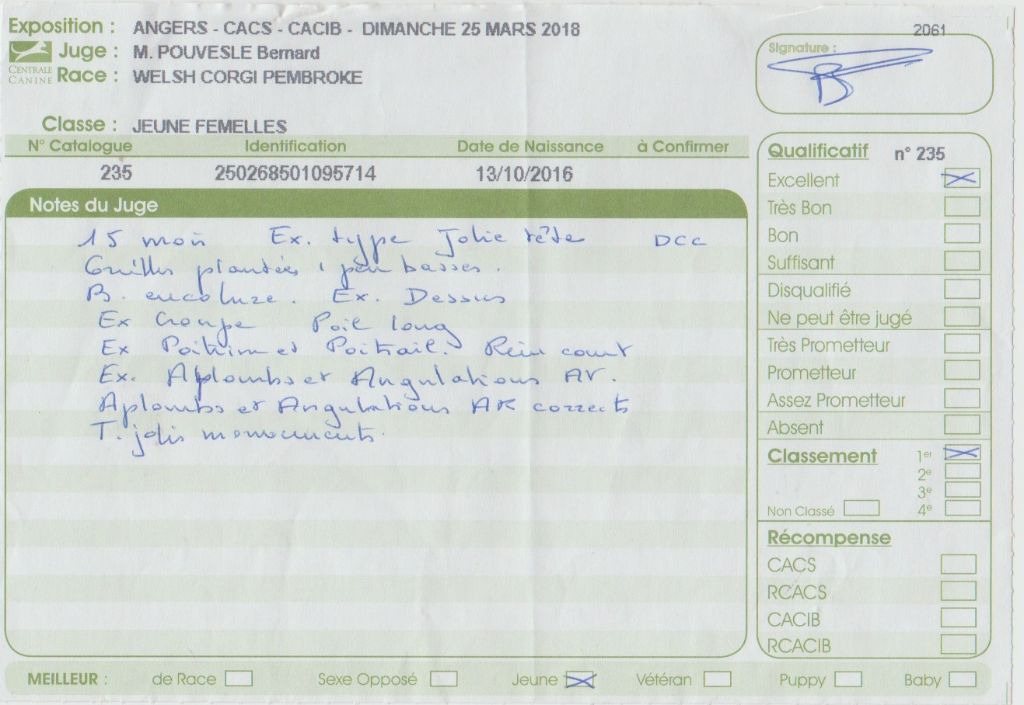 Exposition : ANGERS - CACS - CACIB - DIMANCHE 25 MARS 2018
2061
CENTRALE CANINE
Juge : M. POUVESLE Bernard
Race : WELSH CORGI PEMBROKE
Signature :
Classe : JEUNE FEMELLES
N° Catalogue Identification Date de Naissance à Confirmer
235 250268501095714 13/10/2016
Notes du Juge
15 mois Ex. type Jolie tête DCC
plantées peu basses.
B. encolure. Ex. Dessus
Ex Croupe Poil long
Ex Poitrine et Poitrail. Rein court
Ex. Aplombs et Angulations AV.
Aplombs et Angulations AR corrects
T. jolis mouvements.
Qualificatif n° 235
Excellent
Très Bon
Bon
Suffisant
Disqualifié
Ne peut être jugé
Très Prometteur
Prometteur
Assez Prometteur
Absent
Classement 1er
2e
3e
Non Classé 4e
Récompense
CACS
RCACS
CACIB
RCACIB
MEILLEUR : de Race Sexe Opposé Jeune Vétéran Puppy Baby